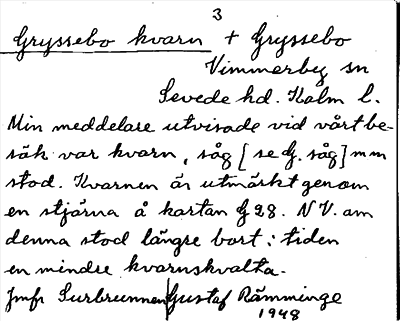 3
Gryssebo kvarn + Gryssebo
Vimmerby sn
Sevede hd. Kalm l.
Min meddelare utvisade vid vårt be-
sök var kvarn, såg [se G. såg] mm
stod. Kvarnen är utmärkt genom
en stjärna å kartan G 28. NV. om
denna stod längre bort i tiden
en mindre kvarnskvalta.
Jmfr Surbrunnen Gustaf Rämminge
1948